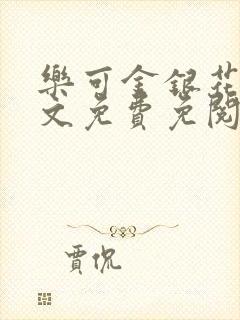 樂可金銀花
文免費免閱
賈侃